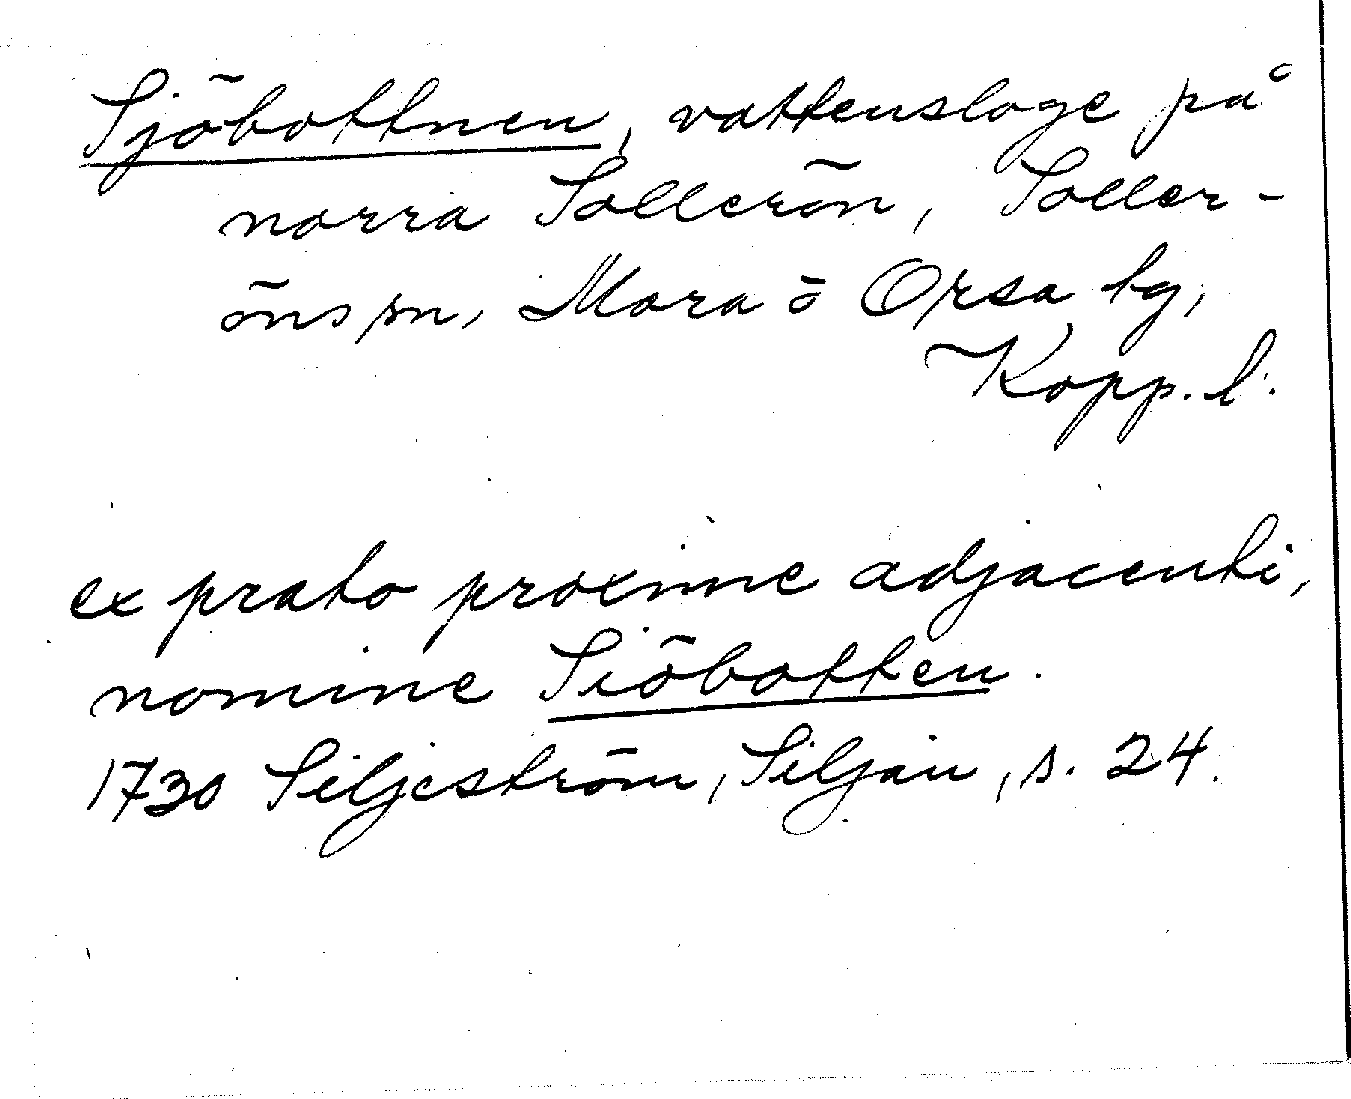 Sjöbottnen, vattensloge på
norra Sollerön, Soller-
öns sn, Mora o Orsa bg,
Kopp. l.
ex prato proxime adjacenti,
nomine Siöbotten.
1730 Siljeström, Siljan, s. 24.